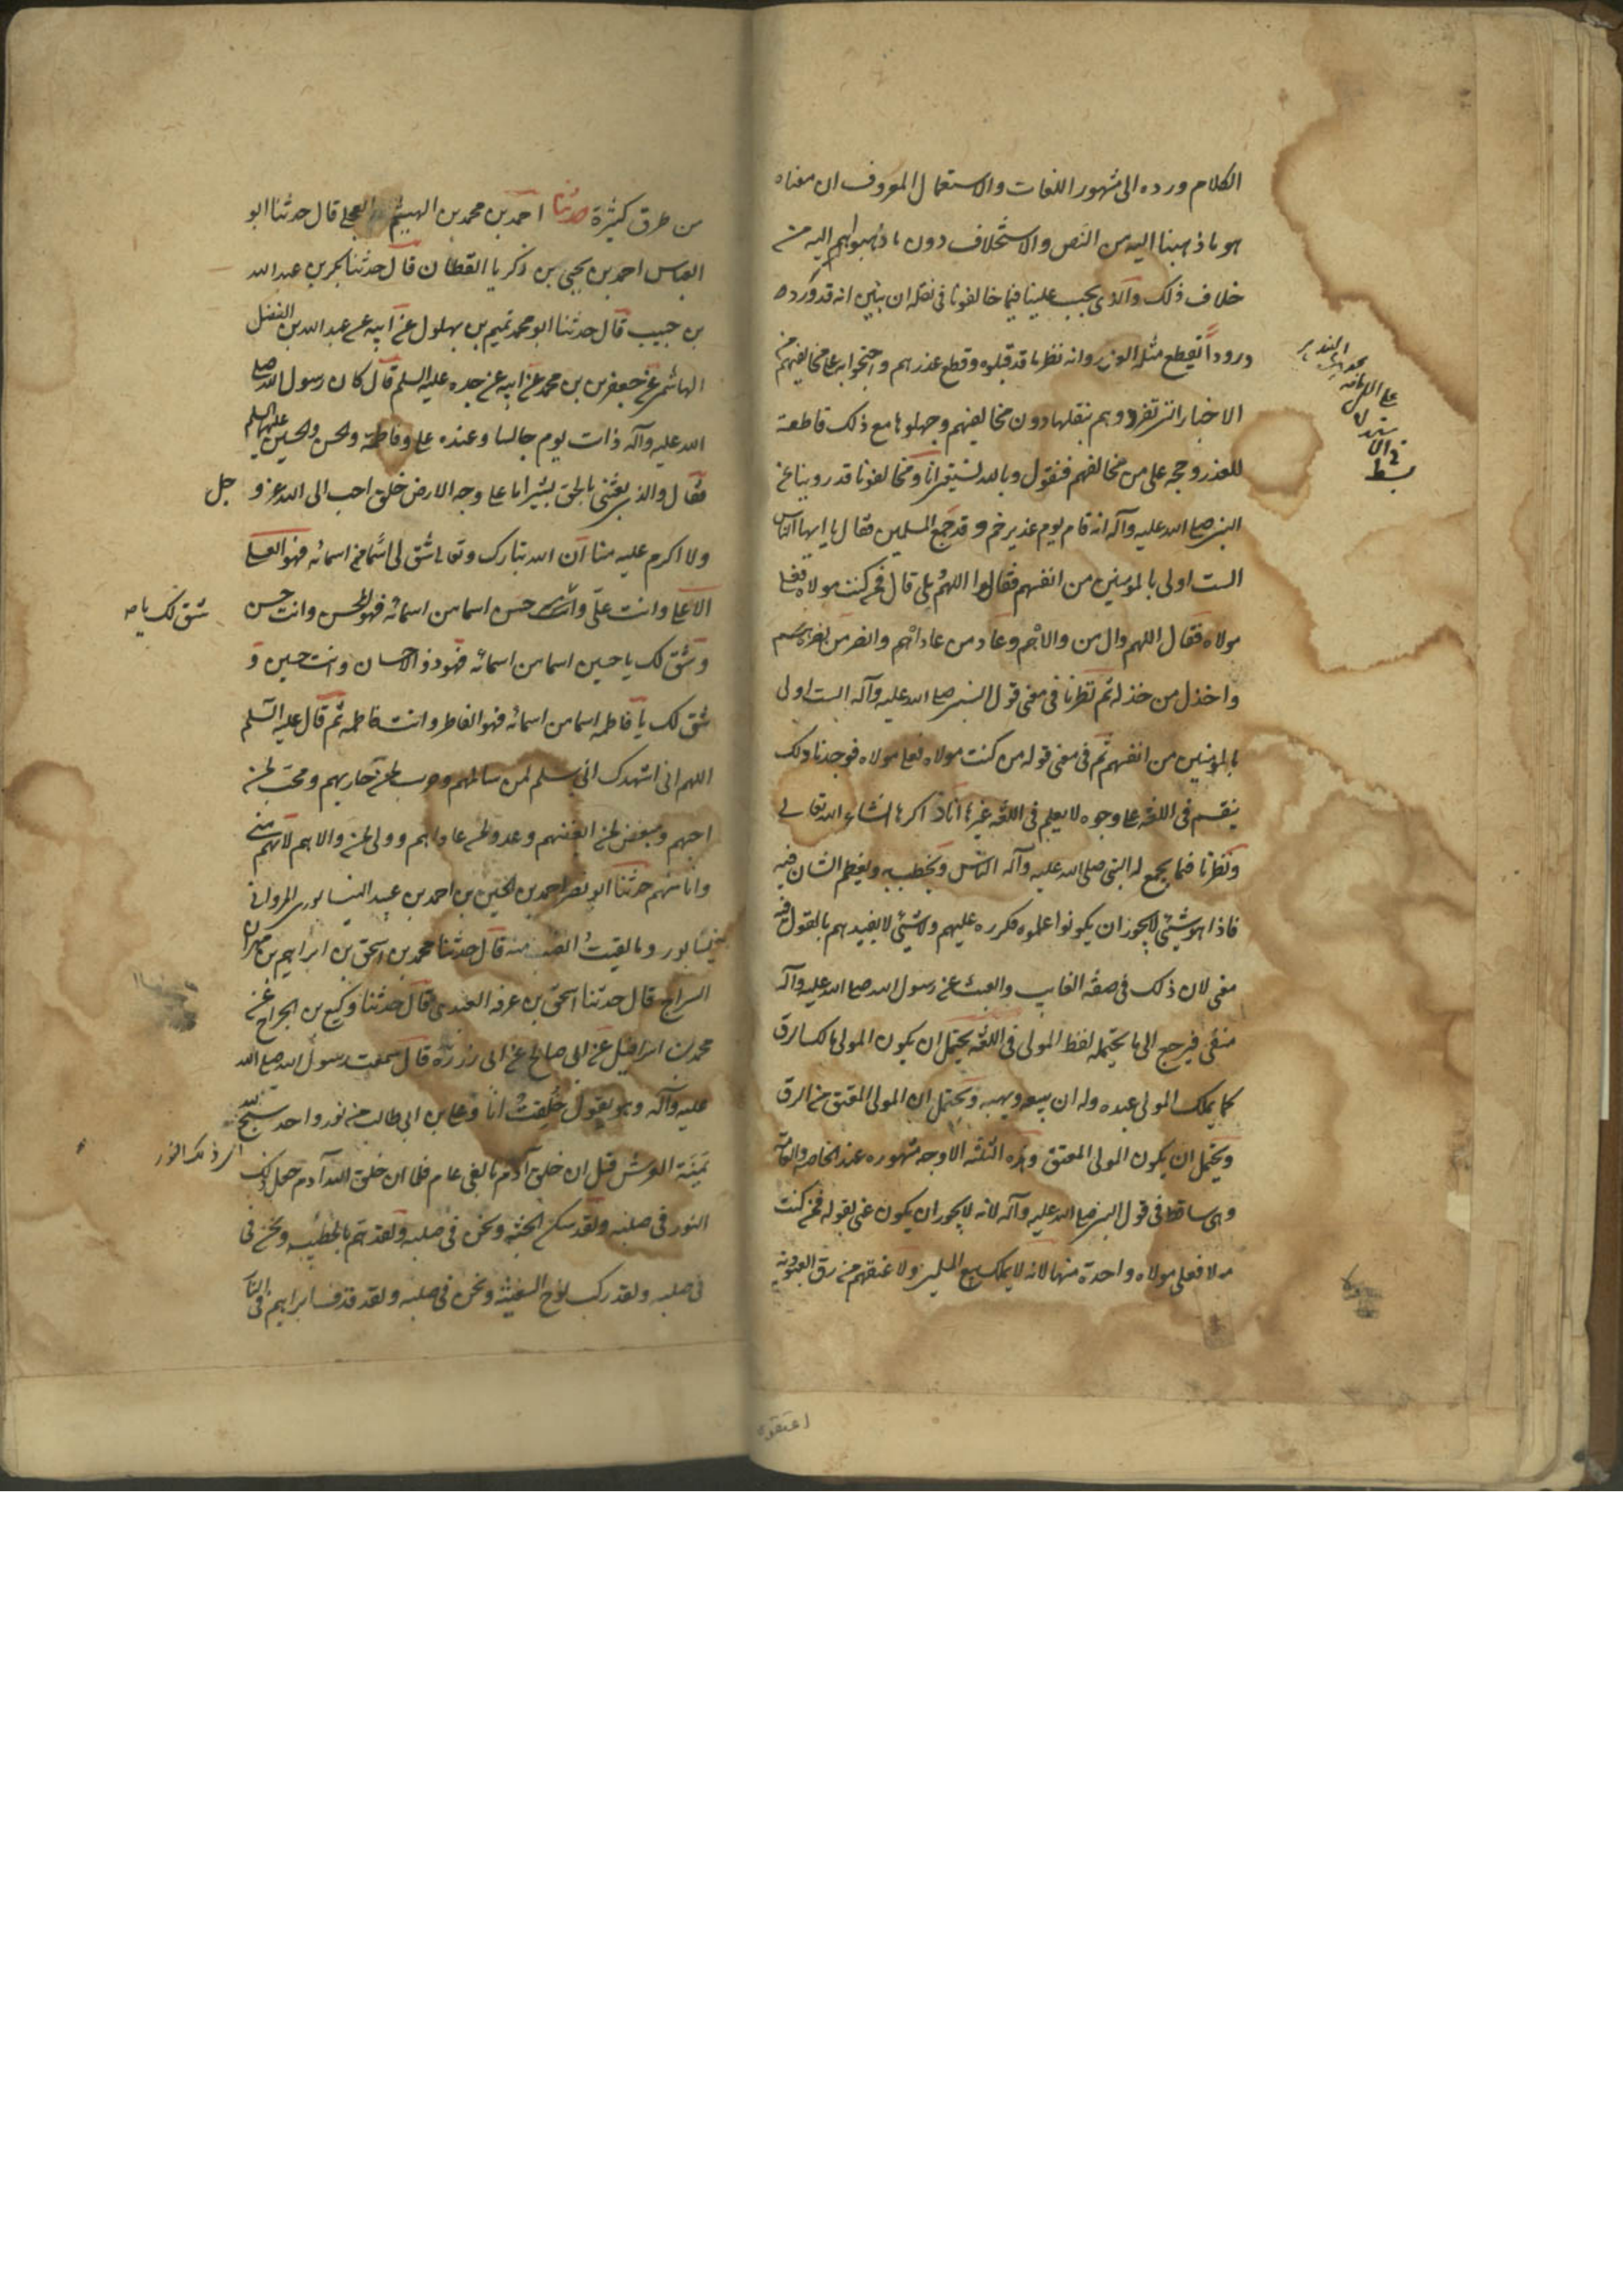 الكلام ورده الى مشهور اللغات والاستعمال المعروف ان معناه
هو ما ذهبنا اليه من النص والاستخلاف دون ما ذهبوا هم اليه من
خلاف ذلك والذى يجب علينا فيما خالفونا فى نقله ان نبين انه قد ورد
ورودا تقطع مثله العذر وانه نظير ما قد قبلوه وقطع عذرهم واحتجوا به على مخالفيهم من
الاخبار التى تفردوا هم بنقلها دون مخالفيهم وجعلوها مع ذلك قاطعة
للعذر وحجه على من خالفهم فنقول وبالله نستعين انا ومخالفونا قد روينا عن
النبى صلى الله عليه وآله انه قام يوم غدير خم وقد جمع المسلمين فقال يا ايها الناس
الست اولى بالمومنين من انفسهم فقالوا اللهم بلى قال فمن كنت مولاه فعلى
مولاه فقال اللهم وال من والاه وعاد من عاداه وانصر من نصره
واخذل من خذله ثم نظرنا فى معنى قول النبى صلى الله عليه وآله الست اولى
بالمؤمنين من انفسهم ثم فى معنى قوله من كنت مولاه فعلى مولاه فوجدنا ذلك
ينقسم فى اللغه على وجوه لا يعلم فى اللغه غيرها انا ذاكرها انشاء الله تعالى
ونظرنا فيما يجمع له النبى صلى الله عليه وآله الناس ويخطب به ويعظم الشان فيه
فاذا هو شيئ لا يجوز ان يكونوا علموه فكرره عليهم ولا شيئ لا يفيدهم بالقول فيه
معنى لان ذلك فى صفه العابث والعبث عن رسول الله صلى الله عليه وآله
منفى فيرجع الى ما يحتمله لفظ المولى فى اللغه يحتمل ان يكون المولى مالك الرق
كما يملك المولى عبده وله ان يبيعه ويهبه ويحتمل ان المولى المعتق من الرق
ويحتمل ان يكون المولى المعتق وهذه الثلثه الاوجه مشهوره عند الخاصه والعامة
وهى ساقطه فى قول النبى صلى الله عليه وآله لانه لا يجوز ان يكون عنى بقوله فمن كنت
مولاه فعلى مولاه واحدة منها لانه لا يملك بيع المسلمين ولا عتقهم من رق العبودية
من طرق كثيرة حدثنا احمد بن محمد بن الهيثم العجلى قال حدثنا ابو
العباس احمد بن يحيى بن زكريا القطان قال حدثنا بكر بن عبد الله
بن حبيب قال حدثنا ابو محمد تميم بن بهلول عن ابيه عن عبد الله بن الفضل
الهاشمى عن جعفر بن محمد عن ابيه عن جده عليه السلم قال كان رسول الله صلى
الله عليه وآله ذات يوم جالسا وعنده على وفاطمة والحسن والحسين عليهم السلم
فقال والذى بعثنى بالحق بشيرا ما على وجه الارض خلق احب الى الله عز و جل
ولا اكرم عليه منا ان الله تبارك وتعالى شق لى اسما من اسمائه فهو العلى
الاعلى وانت على حسن اسما من اسمائه فهو المحسن وانت حسن
شق لك يا
وشق لك يا حسين اسما من اسمائه فهو ذو الاحسان وانت حسين و
شق لك يا فاطمه اسما من اسمائه فهو الفاطر وانت فاطمه ثم قال عليه السلم
اللهم انى اشهدك انى سلم لمن سالمهم وحرب لمن حاربهم ومحب لمن
احبهم ومبغض لمن ابغضهم وعدو لمن عاداهم وولى لمن والاهم لانهم منى
وانا منهم حدثنا ابو نصر احمد بن الحسين بن احمد بن عبيد النيسابورى المروانى
بنيسابور وما لقيت انصب منه قال حدثنا محمد بن اسحق بن ابراهيم بن مهران
السراج قال حدثنا اسحق بن عرفه العبدى قال حدثنا وكيع بن الجراح عن
محمد بن اسرائيل عن ابى صالح عن ابى ذر ره قال سمعت رسول الله صلى الله
عليه وآله وهو يقول خلقت انا وعلى بن ابى طالب من نور واحد نسبح الله
يمينة العرش قبل ان خلق آدم بالفى عام فلما ان خلق الله آدم جعل ذلك
ذلك النور
النور فى صلبه ولقد سكن الجنة ونحن فى صلبه ولقد هم بالخطيئه ونحن فى
فى صلبه ولقد ركب نوح السفينة ونحن فى صلبه ولقد قذف ابراهيم فى النار